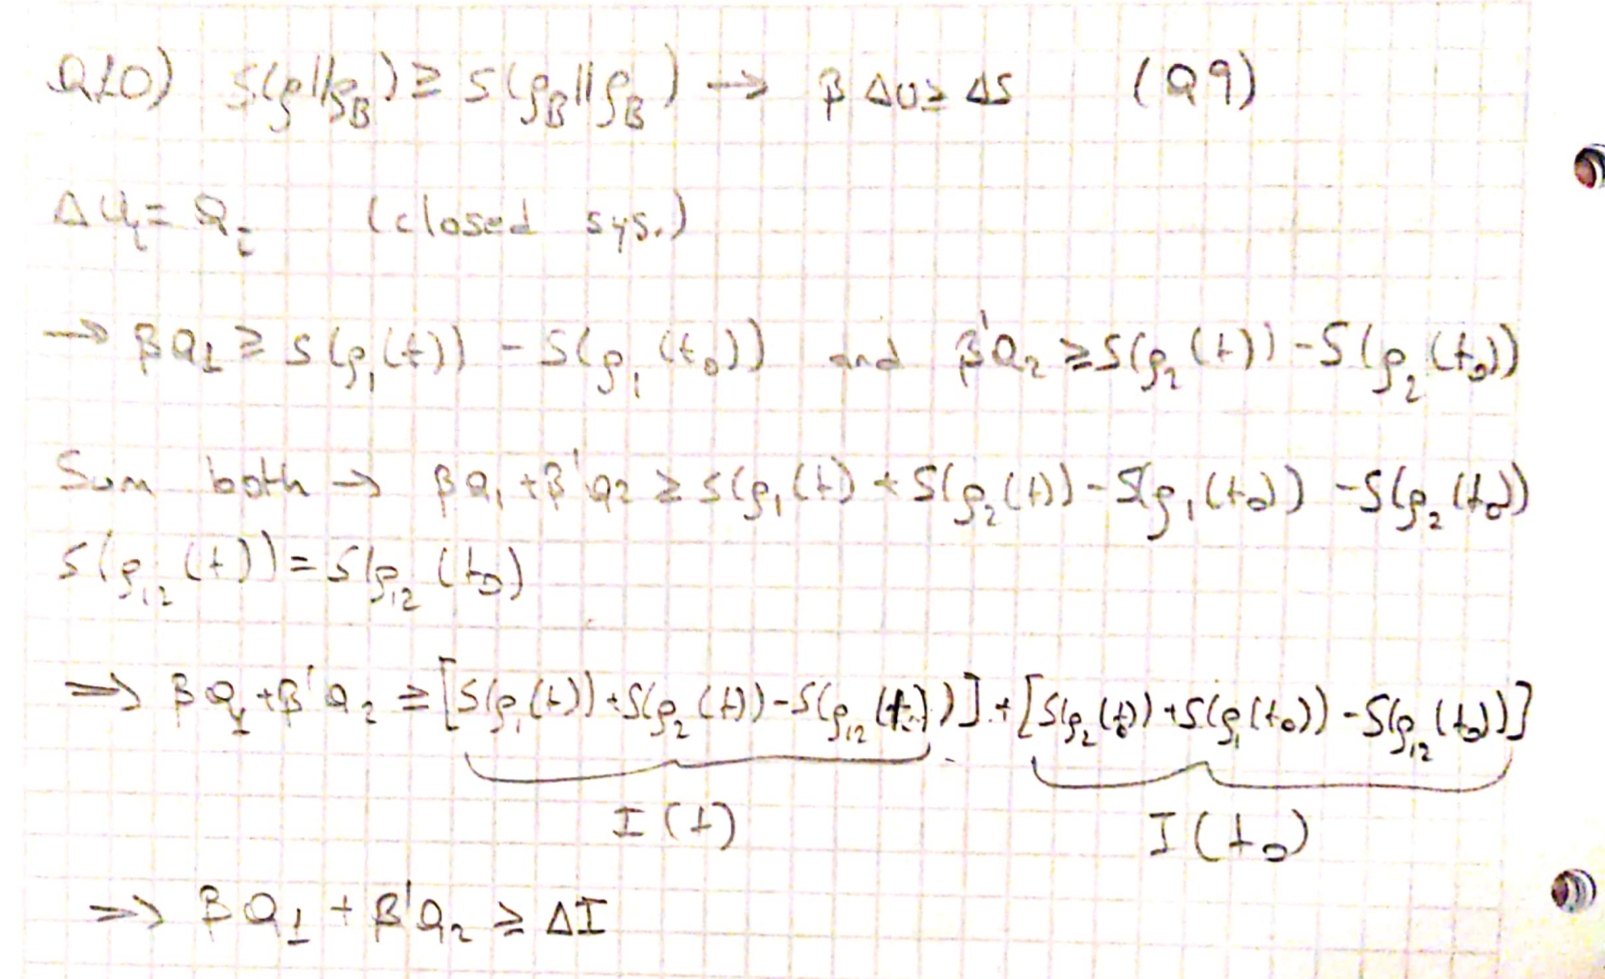 Q10) S(ρ||ρ_B) ≥ S(ρ_B||ρ_B) → β ΔU ≥ ΔS (Q9)
ΔU_i = Q_i (closed sys.)
→ βQ_1 ≥ S(ρ_1(t)) - S(ρ_1(t_0)) and β'Q_2 ≥ S(ρ_2(t)) - S(ρ_2(t_0))
Sum both → βQ_1 + β'Q_2 ≥ S(ρ_1(t) + S(ρ_2(t)) - S(ρ_1(t_0)) - S(ρ_2(t_0))
S(ρ_12(t)) = S(ρ_12(t_0)
⇒ βQ_1 + β'Q_2 ≥ [S(ρ_1(t)) + S(ρ_2(t)) - S(ρ_12(t))] + [S(ρ_2(t_0)) + S(ρ_1(t_0)) - S(ρ_12(t_0))]
I(t) I(t_0)
⇒ βQ_1 + β'Q_2 ≥ ΔI